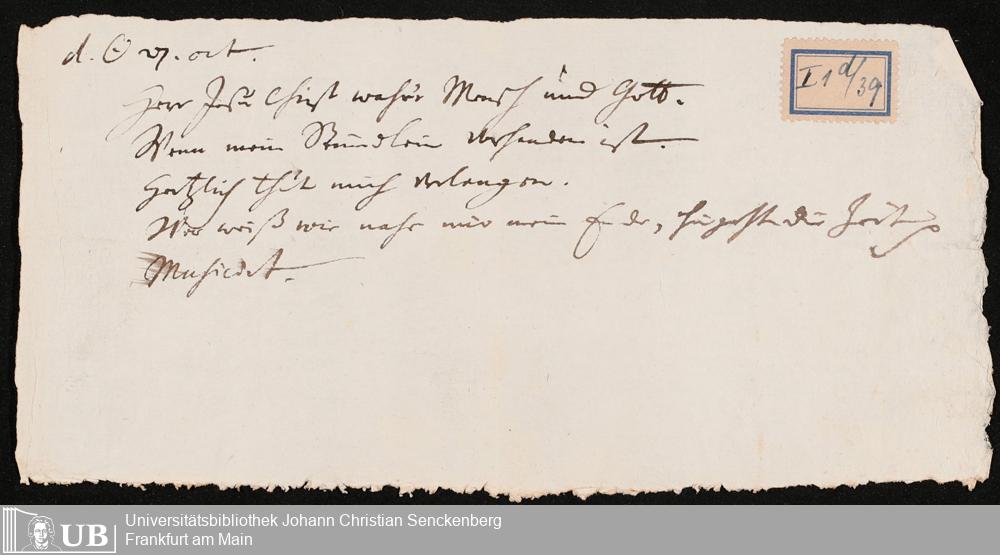 d. ☉ 27. oct.
I 1 d/39
Herr Jesu Christ wahr'r Mensch und Gott.
Wenn mein Stündlein vorhanden ist.
Hertzlich thut mich verlangen.
Wer weiß wie nahe mir mein Ende, hingeht die Zeit
Musicirt.
UB
Universitätsbibliothek Johann Christian Senckenberg
Frankfurt am Main